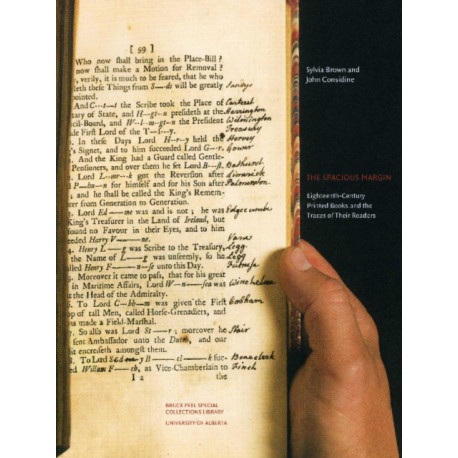 [ 59 ]
Who now shall bring in the Place-Bill?
now shall make a Motion for Removal?
, verily, it is much to be feared, that he who
leth these Things from S---ds will be greatly Sandys
pointed.
And C---t the Scribe took the Place of Carteret
tary of State, and H-gt--n presideth at the Harrington
cil-Board, and W-l--m-gt-n the President Wilmington
de First Lord of the T---s---y. Treasury
. In these Days Lord H--r-y held the Hervey
's Signet, and to him succeeded Lord G--r. Gower
. And the King had a Guard called Gentle-
Pensioners, and over them he set Lord B---t. Bathurst
. Lord L--m--k got the Reversion after Limerick
P--lm--n for himself and for his Son after Palmerston
, and he shall be called the King's Remem-
er from Generation to Generation.
. Lord Ed---me was and is not; he was Edgecumbe
King's Treasurer in the Land of Ireland, but
ound no Favour in their Eyes, and to him
eeded Harry V---ne. Vane
. Henry L---g was Scribe to the Treasury, Legg
the Name of L---g was unseemly, so he Legg
lled Henry F---n-se unto this Day. Furnese
. Moreover it came to pass, that for his great
in Maritime Affairs, Lord W--n--sea was Winchelsea
at the Head of the Admiralty.
. To Lord C--bh--m was given the First Cobham
op of tall Men, called Horse-Grenadiers, and
as made a Field-Marshal.
. So also was Lord St--r; moreover he Stair
sent Ambassador unto the Dutch, and our
ht encreaseth amongst them.
. To Lord Sydney B---cl---k suc- Beauclerk
ed William F---ch, as Vice-Chamberlain to Finch
I 2 the
Sylvia Brown and
John Considine
THE SPACIOUS MARGIN
Eighteenth-Century
Printed Books and the
Traces of Their Readers
BRUCE PEEL SPECIAL
COLLECTIONS LIBRARY
UNIVERSITY OF ALBERTA